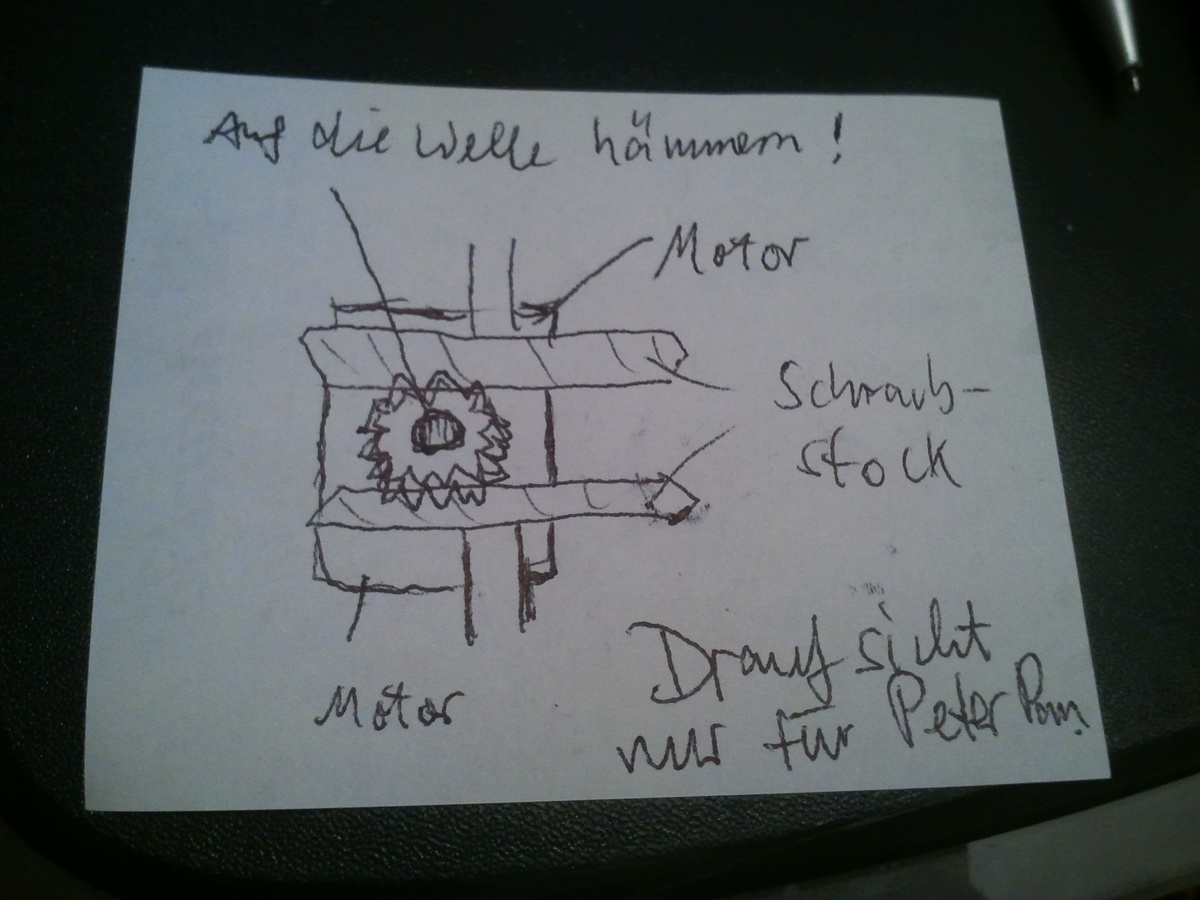 Auf die Welle hämmern!
Motor
Schraub-
stock
Motor
Draufsicht
nur für Peter Pan.